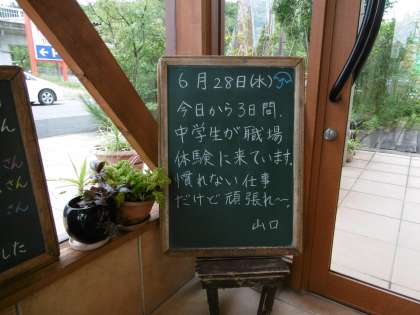 6月28日(水)
今日から3日間、
中学生が職場
体験に来ています。
慣れない仕事
だけど頑張れ〜。
山口
さん
さん
さん
した